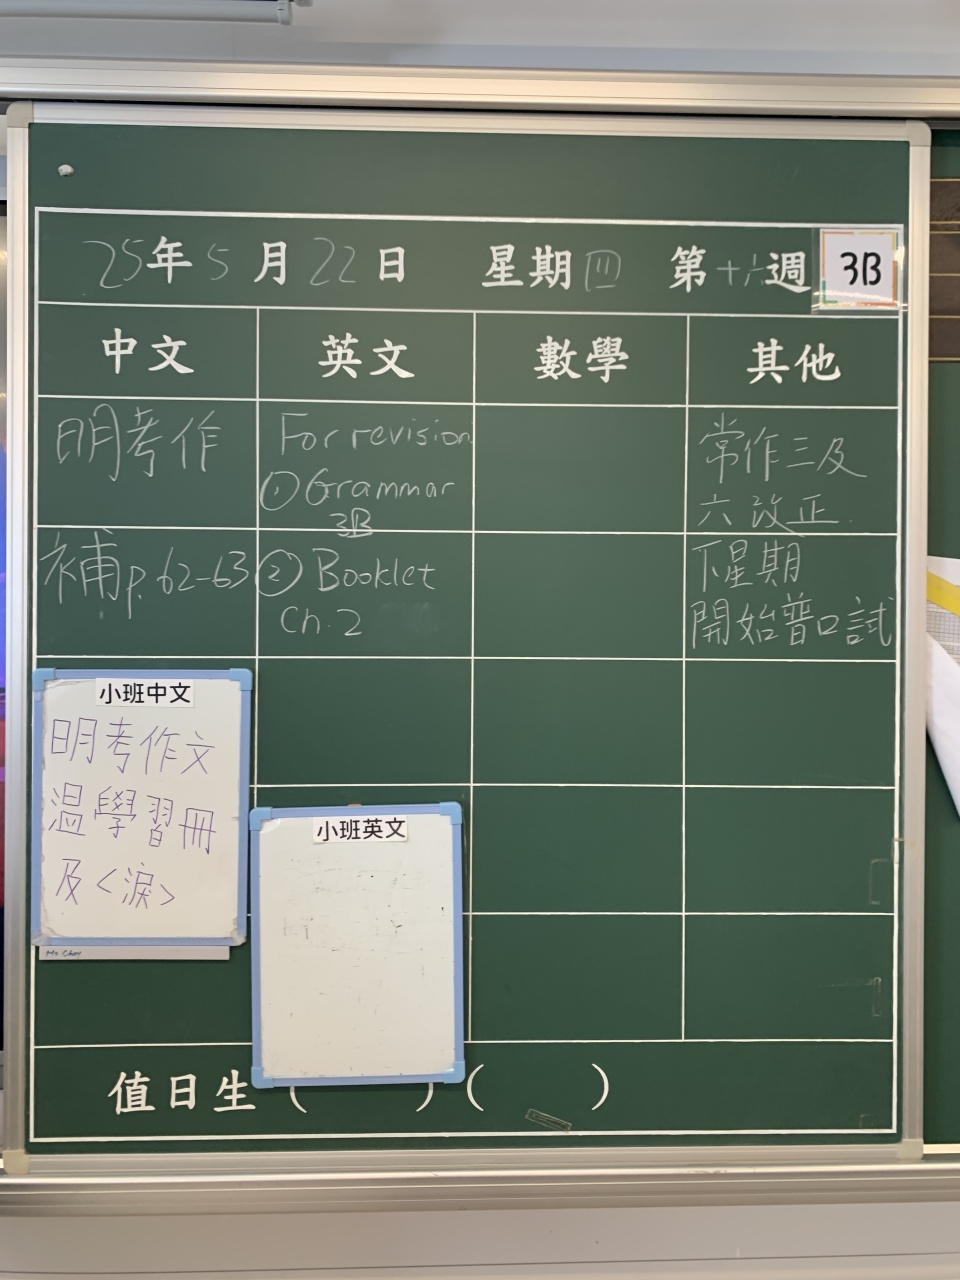 25年5月22日 星期四 第十六週 3B
中文 英文 數學 其他
明考作
補p.62-63
For revision
① Grammar
3B
② Booklet
Ch.2
常作三及
六改正.
下星期
開始普口試
小班中文
明考作文
溫學習冊
及<淚>
Ms Choy
小班英文
值日生( )( )